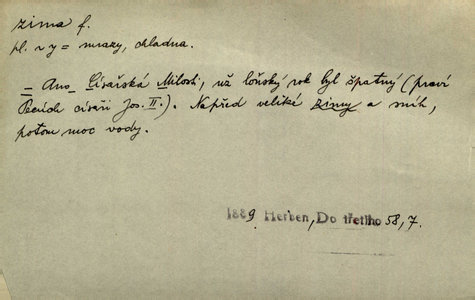 zima f.
pl. zy = mrazy, chladna.
= Ano_ Císařská Milosti, už loňský rok byl špatný (praví
císaři Jos. II.). Napřed veliké zimy a sníh,
potom moc vody.
1889 Herben, Do třetího 58, 7.